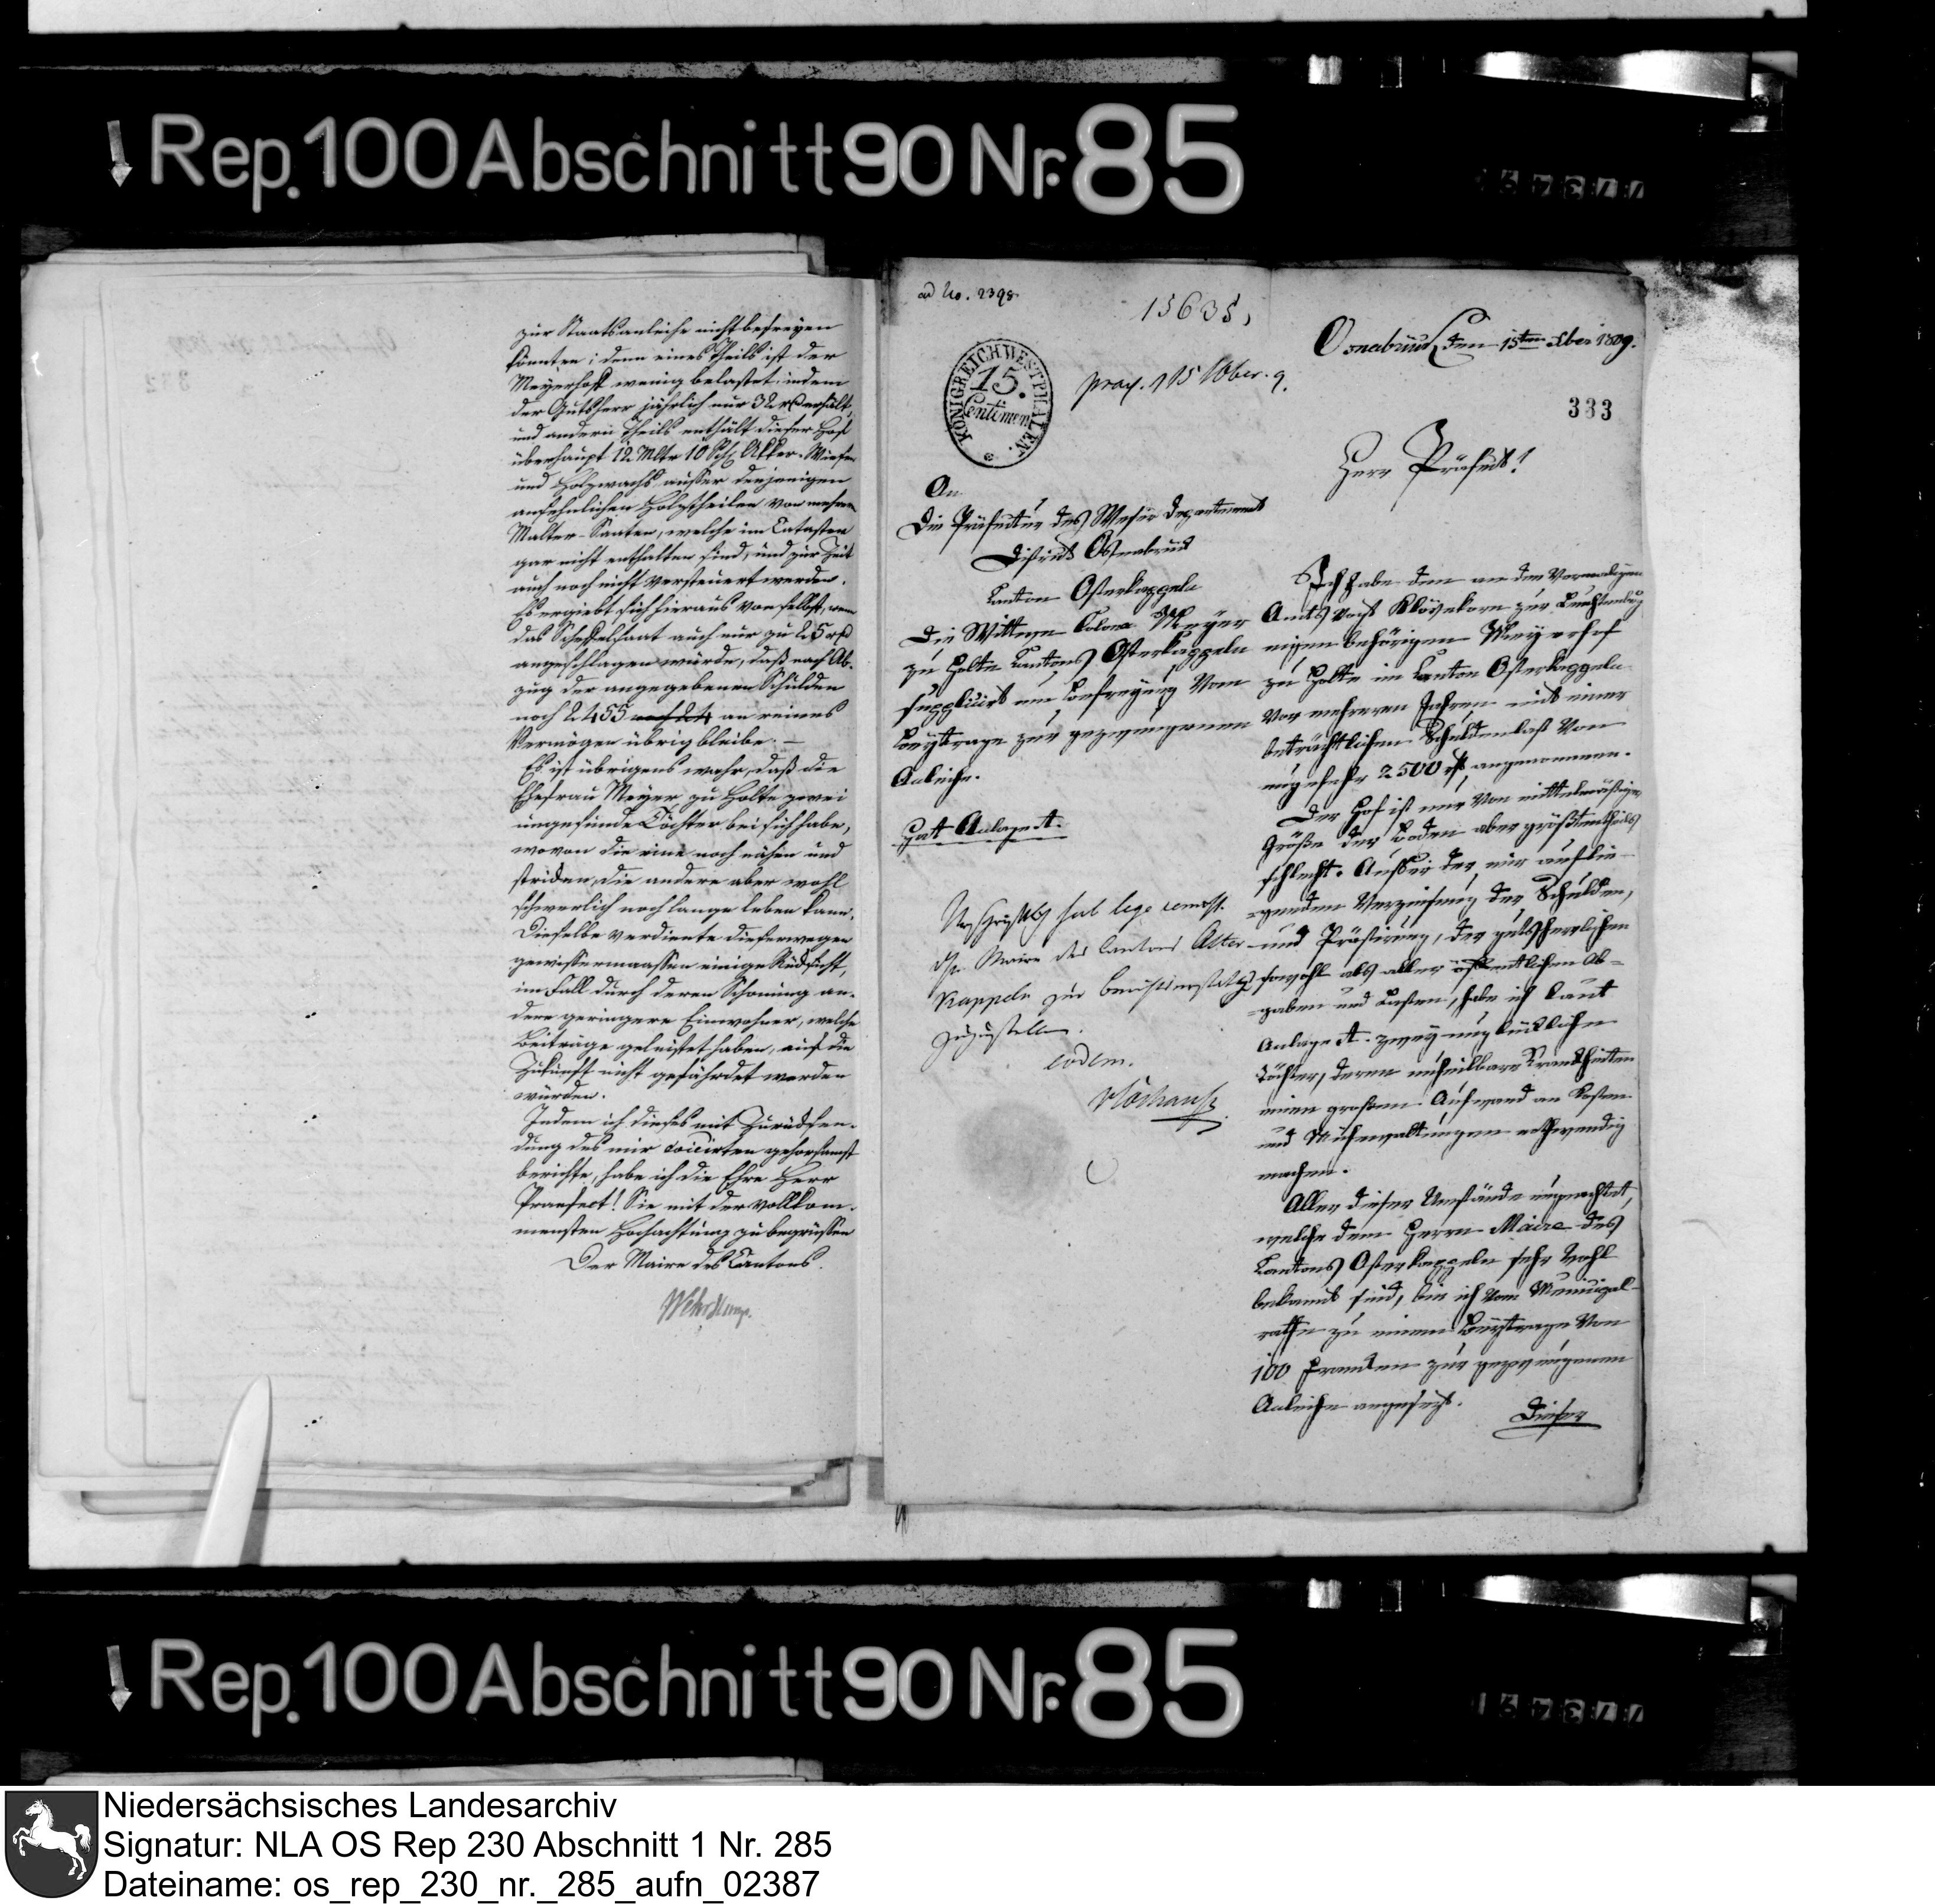 Rep. 100 Abschnitt 90 Nr. 85
zur Staatsanleihe nicht befreyen
könnten; denn eines Theils ist der
Meyerhoff wenig belastet, indem
der Gutsherr jährlich nur 32 rt erhält,
und andern Theils enthält dieser Hof
überhaupt 12 Mltr 10 Schl Akker-Wiesen
und Holzwachs ausser denjenigen
ansehnlichen Holztheilen von mehrern
Malter-Saaten, welche im Cataster
gar nicht enthalten sind, und zur Zeit
auch noch nicht versteuert werden.
Es ergiebt sich hieraus von selbst, wenn
das Scheffelsaat auch nur zu 25 rt
angeschlagen würde, daß nach Ab-
zug der angegebenen Schulden
noch 2455 an reines
Vermögen übrig bleibe. —
Es ist übrigens wahr, daß die
Ehefrau Meyer zu Holte zwei
ungesunde Töchter bei sich habe,
wovon die eine noch nähen und
stricken, die andere aber wohl
schwerlich noch lange leben kann.
Dieselbe verdiente dieserwegen
gewissermaassen einige Rücksicht,
im Fall durch deren Schonung an-
dere geringere Einwohner, welche
Beiträge geleistet haben, auf die
Zukunft nicht gefährdet werden
würden.
Indem ich dieses mit Zurücksen-
dung des mir gehorsamst
berichte, habe ich die Ehre Herr
Praefect! Sie mit der vollkom-
mensten Hochachtung zu begrüssen
Der Maire des Cantons.
ad No. 2398
15638
Osnabrück den 15ten 1809.
KÖNIGREICH WESTPHALEN.
15.
Centimen
333
Herr Präfect!
An
Die Präfectur des Weser Departements
District Osnabrück
Canton Osterkappeln
Die Wittwe Colona Meyer
zu Holte Cantons Osterkappeln
supplicirt um Befreyung vom
Beytrage zur gezwungenen
Anleihe.
Hat Anlage A.
sub lege remiss.
dem Maire des Cantons Oster-
kappeln zur
zuzustellen.
eodem.
Ich habe den an den vormaligen
Amts Vogt Klövekorn zur Leuchtenburg
eigenbehörigen Meyerhof
zu Holte im Canton Osterkappeln
vor mehreren Jahren mit einer
beträchtlichen Schuldenlast von
ungefehr 2500 rt angenommen.
Der Hof ist nur von mittelmäßiger
Größe der Boden aber größtentheils
schlecht. Ausser der mir auflie-
=genden Verzinsung der Schulden,
und Prästirung, der gutsherrlichen
sowohl als aller öffentlichen Ab=
=gaben und Lasten, habe ich laut
Anlage A. zwey unglückliche
Töchter, deren unheilbare Krankheiten
einen großen Aufwand an Kosten
und Mühewaltungen nothwendig
machen.
Aller dieser Umstände ungeachtet,
welche dem Herrn Maire des
Cantons Osterkappeln sehr wohl
bekannt sind, bin ich vom Municipal-
rathe zu einem Beytrage von
100 Franken zur gezwungenen
Anleihe angesetzt.
Dieser
Rep. 100 Abschnitt 90 Nr. 85
Niedersächsisches Landesarchiv
Signatur: NLA OS Rep 230 Abschnitt 1 Nr. 285
Dateiname: os_rep_230_nr._285_aufn_02387